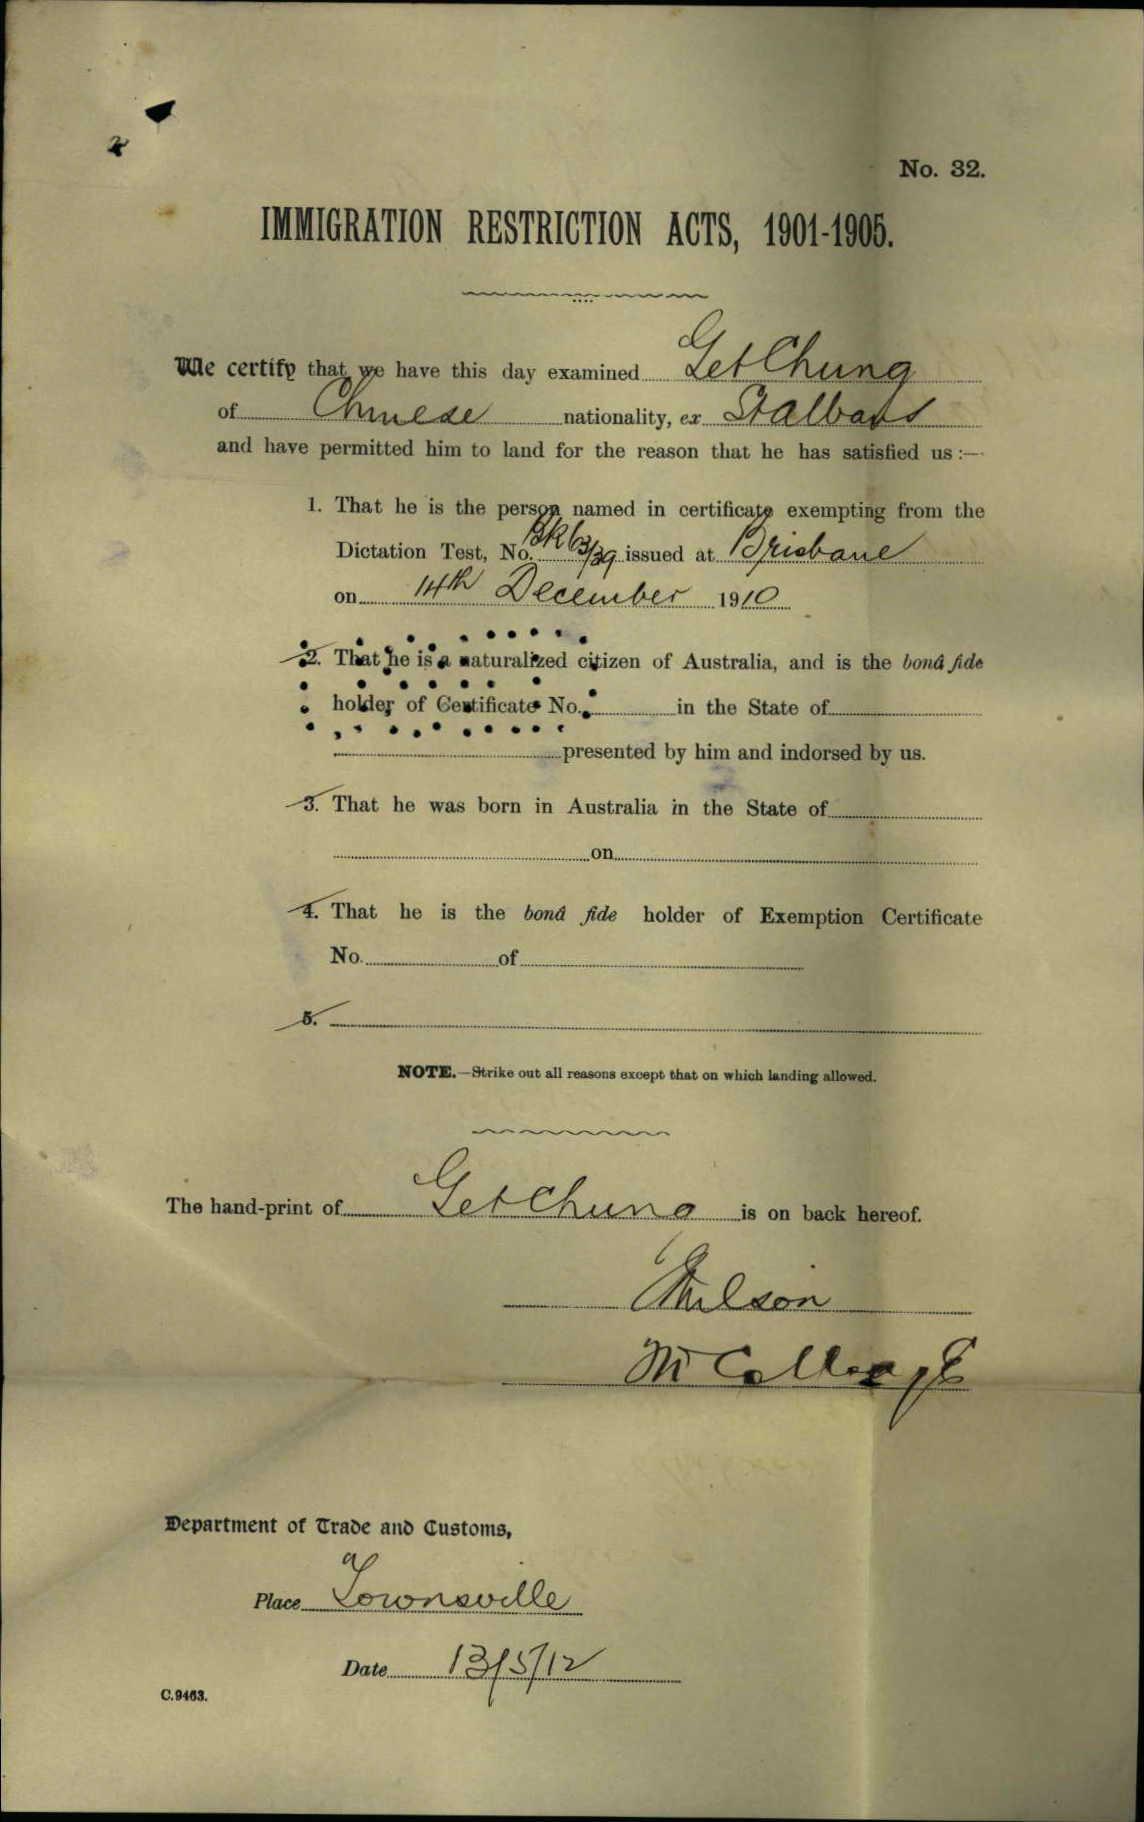 No. 32.
IMMIGRATION RESTRICTION ACTS, 1901-1905.
We certify that we have this day examined Get Chung
of Chinese nationality, ex St Albans
and have permitted him to land for the reason that he has satisfied us :—
1. That he is the person named in certificate exempting from the
Dictation Test, No. Bk 63/39 issued at Brisbane
on 14th December 1910
2. That he is a naturalized citizen of Australia, and is the bonâ fide
holder of Certificate No. in the State of
presented by him and indorsed by us.
3. That he was born in Australia in the State of
on
4. That he is the bonâ fide holder of Exemption Certificate
No. of
5.
NOTE.—Strike out all reasons except that on which landing allowed.
The hand-print of Get Chung is on back hereof.
Department of Trade and Customs,
Place Townsville
Date 13/5/12
C.9463.